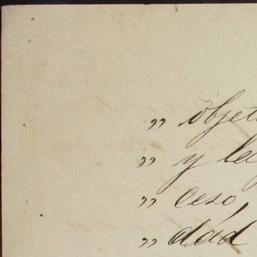 „ objet
„ y la
„ ceso,
„ dad